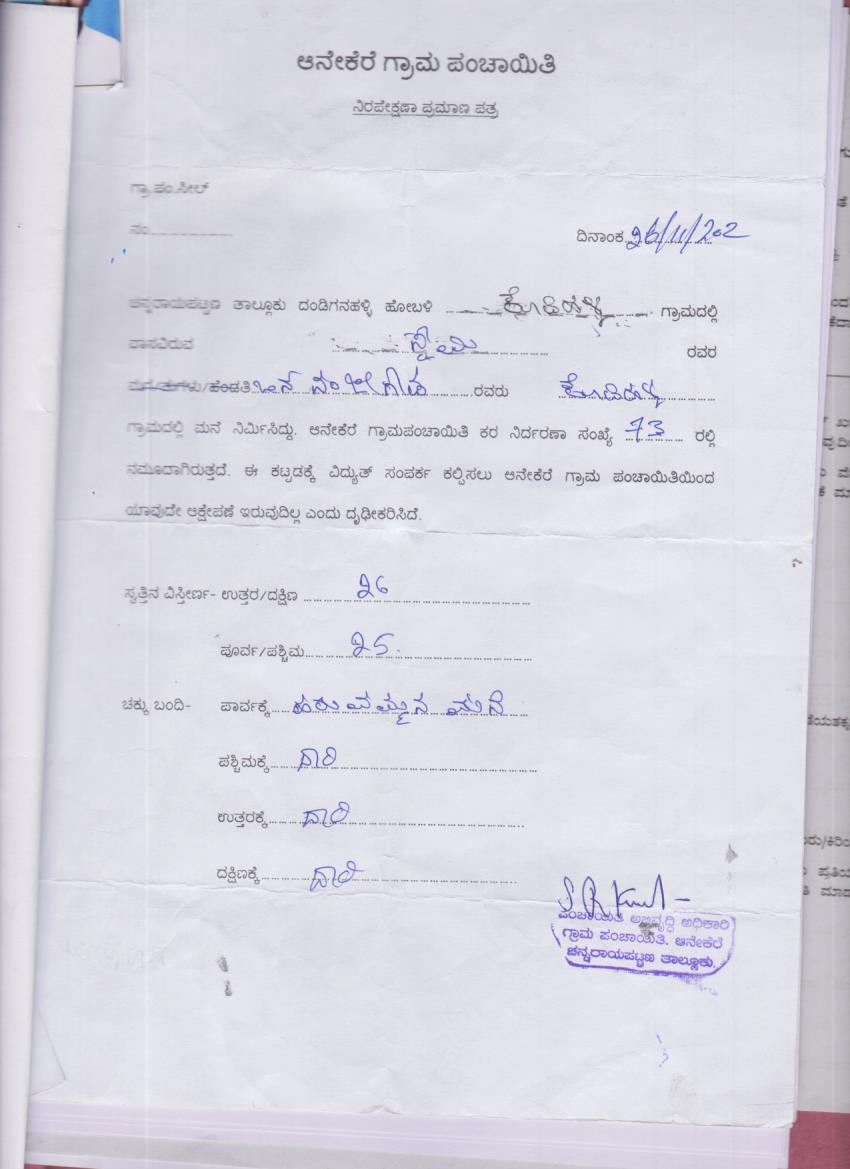 ಆನೇಕೆರೆ ಗ್ರಾಮ ಪಂಚಾಯಿತಿ
ನಿರಪೇಕ್ಷಣಾ ಪ್ರಮಾಣ ಪತ್ರ
ಗ್ರಾ.ಪಂ.ಸೀಲ್
ನಂ....................
ದಿನಾಂಕ 26/11/202
ಚನ್ನರಾಯಪಟ್ಟಣ ತಾಲ್ಲೂಕು ದಂಡಿಗನಹಳ್ಳಿ ಹೋಬಳಿ ಗ್ರಾಮದಲ್ಲಿ
ವಾಸವಿರುವ ರವರ
ಮಗ/ಮಗಳು/ಹೆಂಡತಿ ರವರು
ಗ್ರಾಮದಲ್ಲಿ ಮನೆ ನಿರ್ಮಿಸಿದ್ದು, ಆನೇಕೆರೆ ಗ್ರಾಮಪಂಚಾಯಿತಿ ಕರ ನಿರ್ದರಣಾ ಸಂಖ್ಯೆ 73 ರಲ್ಲಿ
ನಮೂದಾಗಿರುತ್ತದೆ. ಈ ಕಟ್ಟಡಕ್ಕೆ ವಿದ್ಯುತ್ ಸಂಪರ್ಕ ಕಲ್ಪಿಸಲು ಆನೇಕೆರೆ ಗ್ರಾಮ ಪಂಚಾಯಿತಿಯಿಂದ
ಯಾವುದೇ ಆಕ್ಷೇಪಣೆ ಇರುವುದಿಲ್ಲ ಎಂದು ದೃಢೀಕರಿಸಿದೆ.
ಸ್ವತ್ತಿನ ವಿಸ್ತೀರ್ಣ- ಉತ್ತರ/ದಕ್ಷಿಣ 26
ಪೂರ್ವ/ಪಶ್ಚಿಮ 25.
ಚಕ್ಕು ಬಂದಿ- ಪಾರ್ವಕ್ಕೆ ಮನೆ
ಪಶ್ಚಿಮಕ್ಕೆ ದಾರಿ
ಉತ್ತರಕ್ಕೆ ದಾರಿ
ದಕ್ಷಿಣಕ್ಕೆ ದಾರಿ
ಪಂಚಾಯಿತಿ ಅಭಿವೃದ್ಧಿ ಅಧಿಕಾರಿ
ಗ್ರಾಮ ಪಂಚಾಯಿತಿ, ಆನೇಕೆರೆ
ಚನ್ನರಾಯಪಟ್ಟಣ ತಾಲ್ಲೂಕು.